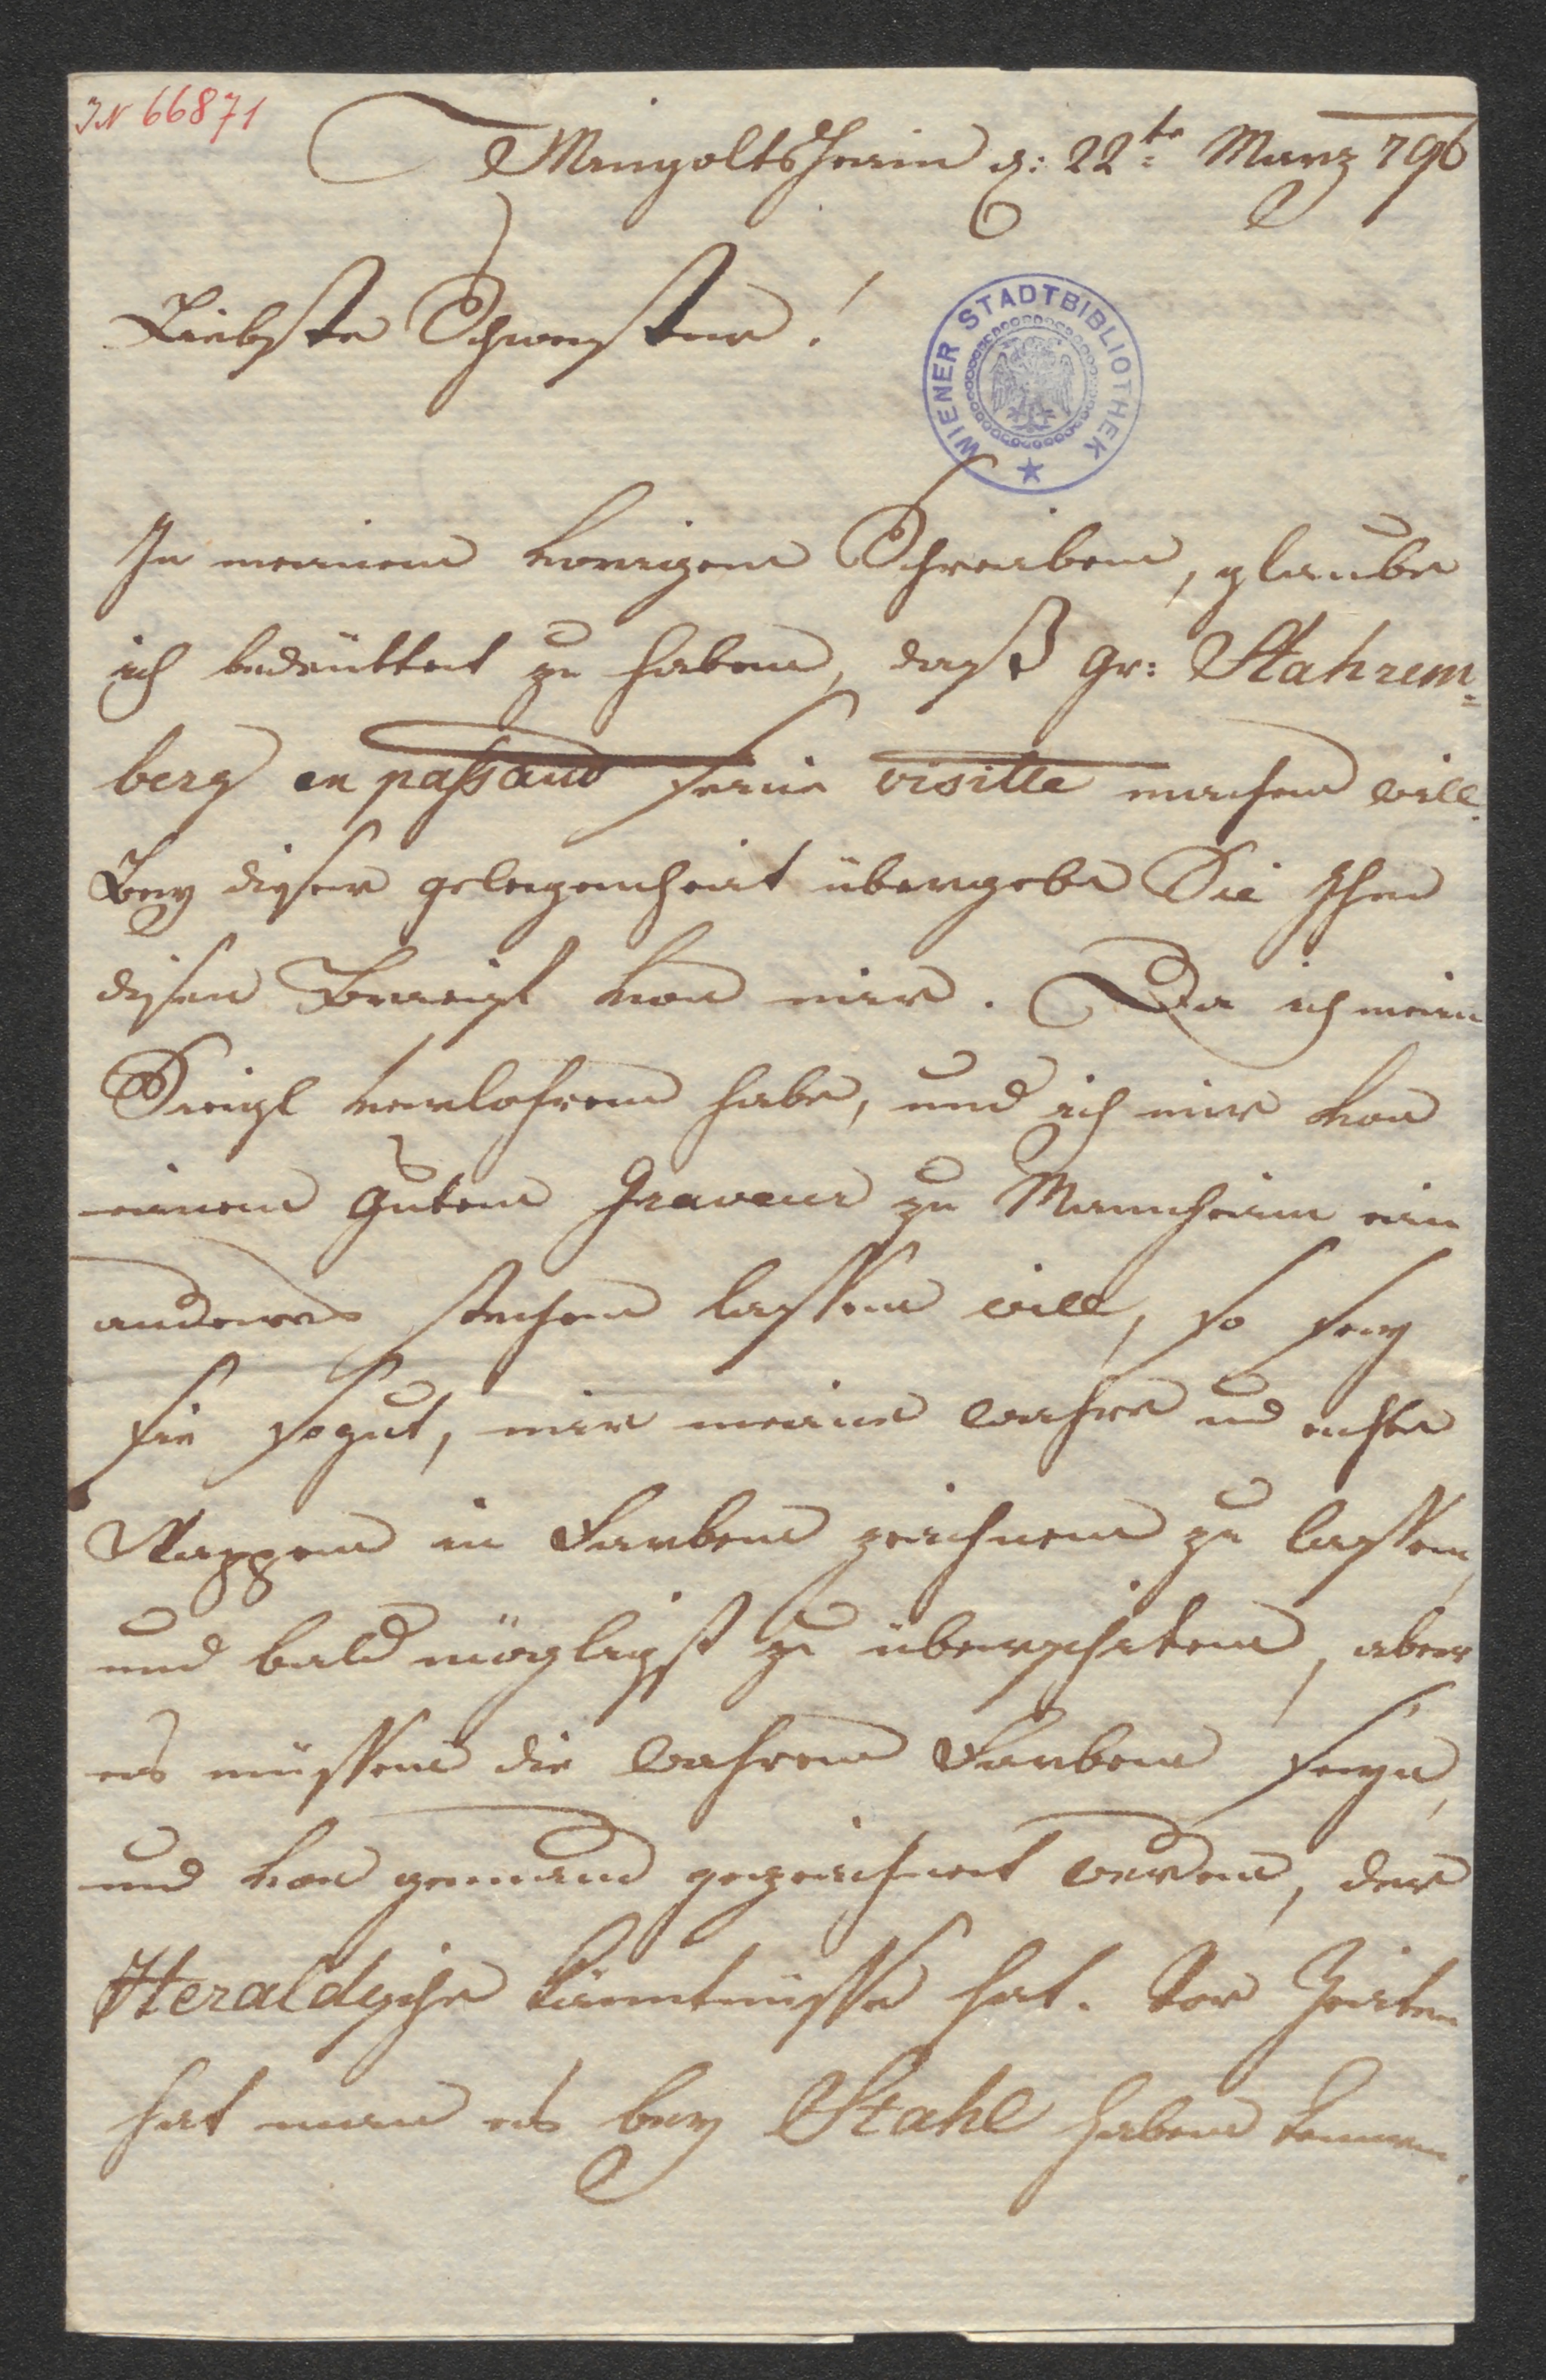 IN 66871
Mingoltsheim d: 22te Marz 796
Liebste Schwester!
WIENER STADTBIBLIOTHEK
In meinem vorigen Schreiben, glaube
ich bedeuttet zu haben, daß Gr: Stahrem=
berg en passand seine visitte machen will.
Bey diser gelegenheit übergebe Sie Ihm
disen Brief von mir. Da ich mein
Sigl verlohren habe, und ich mir von
einem Guten Graveur zu Mannheim ein
anderes stechen lassen will, so sey
sie so gut, mir meine wahre und echte
Wappen in Farben zeichnen zu lassen,
und bald mögligst zu überschiken, aber
es müssen die wahren Farben seyn,
und von gemand gezeichnet werden, der
Heraldysche käntnüsse hat. Vor Zeiten
hat man es bey Stahl haben kennen.